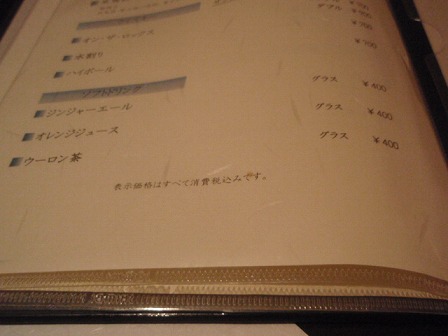 オン・ザ・ロックス ¥700
水割り ¥700
ハイボール
ソフトドリンク
ジンジャーエール グラス ¥400
オレンジジュース グラス ¥400
ウーロン茶 グラス ¥400
表示価格はすべて消費税込みです。